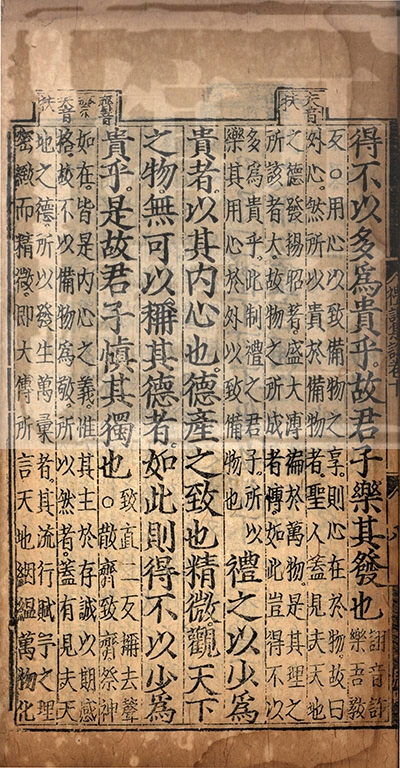 夫音
扶
齊音
夫音
扶
得不以多爲貴乎。故君子樂其發也
詡音許
樂吾敎
反○用心以致備物之享。則心在於物。故曰
外心。然所以貴於備物者。聖人蓋見夫天地
之德發揚昭著。盛大溥徧於萬物。是其理之
所該者大。故物之所成者博。如此豈得不以
多爲貴乎。此制禮之君子。所以
樂其用心於外以致備物也
禮之以少爲
貴者。以其內心也。德產之致也精微。觀天下
之物無可以稱其德者。如此則得不以少爲
貴乎。是故君子愼其獨也
致直二反稱去聲
○散齊致齊祭神
如在。皆是內心之義。惟其主於存誠以期感
格。故不以備物爲敬。所以然者。蓋有見夫天
地之德。所以發生萬彙者。其流行賦予之理
密緻而精微。即大傳所言天地絪縕萬物化